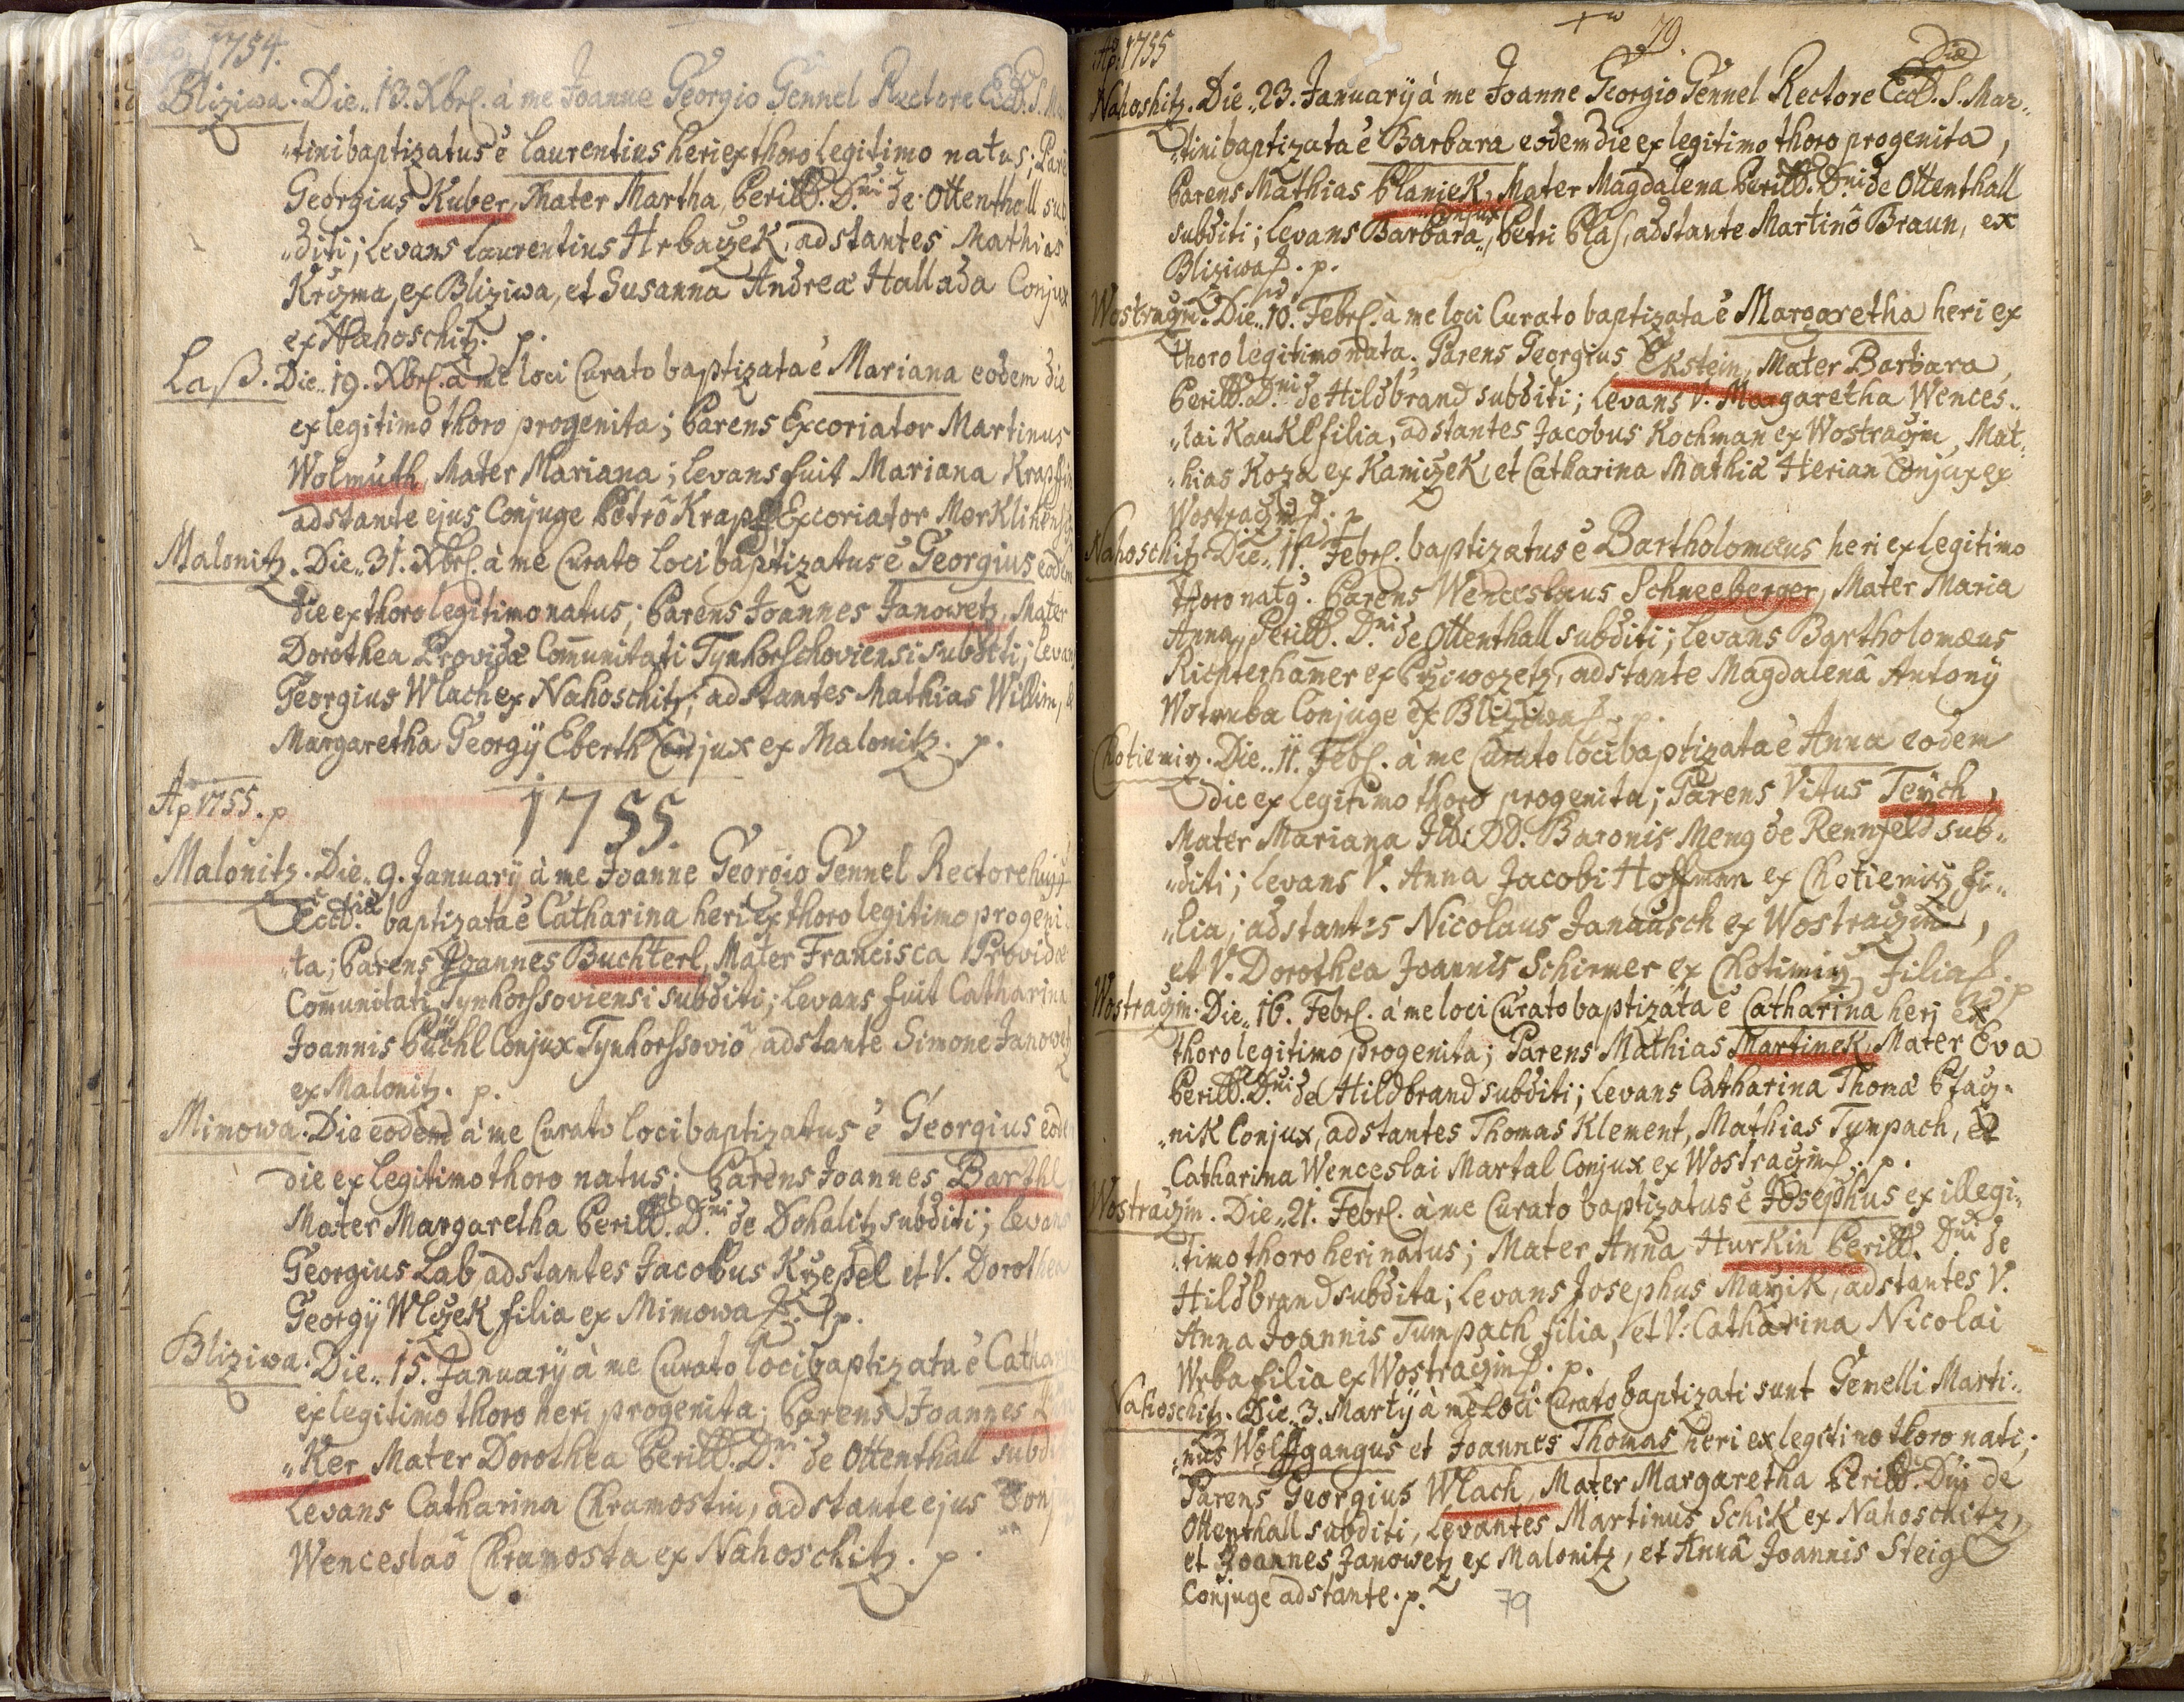 1754.
Bliziwa. Die 13. Xbrs. à me Joanne Georgio Gennel Rectore Eccl. S. Mar
„tini baptizatus ê Laurentius heri ex thoro legitimo natus; Pare
Georgius Kuber, Mater Martha, Perill. D.ni de Ottenthall sub
„diti; Levans Laurentius Hrbaczek, adstantes Mathias
Krizma, ex Bliziwa, et Susanna Andreæ Hallada Conjux
ex Nahoschitz. p.
Laß. Die 19. Xbrs. à me loci Curato baptizata ê Mariana eodem die
ex legitimo thoro progenita; Parens Excoriator Martinus
Wolmuth, Mater Mariana; Levans fuit Mariana
adstante ejus Conjuge Petrô Krapf, Excoriator
Malonitz. Die 31. Xbrs. à me Curato loci baptizatus ê Georgius eodem
die ex thoro legitimo natus; Parens Joannes Janowetz, Mater
Dorothea Providæ Com̄unitati Tynhorschoviensi subditi; Levans
Georgius Wlach ex Nahoschitz; adstantes Mathias Willim, &
Margaretha Georgij Eberth Conjux ex Malonitz. p.
Aō 1755. p
1755.
Malonitz. Die 9. Januarij à me Joanne Georgio Gennel Rectore hujus
Eccl.siæ baptizata ê Catharina heri ex thoro legitimo progeni
„ta; Parens Joannes Buchterl, Mater Francisca Providæ
Com̄unitati Tynhorssoviensi subditi; Levans fuit Catharina
Joannis Püchl Conjux Tynhorssoviô, adstante Simone Janowetz
ex Malonitz. p.
Mimowa. Die eodem à me Curato loci baptizatus ê Georgius eod
die ex legitimo thoro natus; Parens Joannes Barthl
Mater Margaretha Perill. D.ni de Dohalitz subditi; Levans
Georgius Lab, adstantes Jacobus Krzepel et V. Dorothea
Georgij Wlczek filia ex Mimowa. p.
Bliziwa. Die 15. Januarij à me Curato loci baptizata ê Cathar
ex legitimo thoro heri progenita; Parens Joannes
„Ker Mater Dorothea Perill. D.ni de Ottenthall subdi
Levans Catharina Chramostin, adstante ejus Conju
Wenceslaô Chramosta ex Nahoschitz. p.
79.
Aō 1755
Nahoshitz. Die 23. Januarij à me Joanne Georgio Gennel Rectore Eccl.siæ S. Mar„
„tini baptizata ê Barbara eodem die ex legitimo thoro progenita,
Parens Mathias Planiek, Mater Magdalena Perill. D.ni de Ottenthall
subditi; Levans Barbara Conjux Petri Blas, adstante Martinô Braun, ex
Bliziwa. p.
Wostraczin. Die 10. Febr. à me loci Curato baptizata ê Margaretha heri ex
thoro legitimo nata; Parens Georgius Ekstein, Mater Barbara,
Perill. D.ni de Hildbrand subditi; Levans V. Margaretha Wences„
„lai Kaukl filia, adstantes Jacobus Kochman ex Wostraczin, Mat„
„hias Koza ex Kamiczek, et Catharina Mathiæ Herian Conjux ex
Wostraczin. p
Nahoschitz. Die 11. Febr. baptizatus ê Bartholomæus heri ex legitimo
thoro natq. Parens Wenceslaus Schneeberger, Mater Maria
Anna, Perill. D.ni de Ottenthall subditi; Levans Bartholomæus
Richterham̄er ex Przivozetz, adstante Magdalenâ Antonij
Wotruba Conjuge ex Bliziwa. p.
Chotiemiz. Die 11. Febr. à me Curato loci baptizata ê Anna eodem
die ex legitimo thoro progenita; Parens Vitus Teÿch,
Mater Mariana Ill. DD. Baronis Meng de Rennfeld sub„
„diti; Levans V. Anna Jacobi Hoffman ex Chotiemiz fi„
„lia; adstantes Nicolaus Janausch ex Wostraczin,
et V. Dorothea Joannis Schirmer ex Chotimiz, filia. p
Wostraczin. Die 16. Febr. à me loci Curato baptizata ê Catharina heri ex
thoro legitimo progenita; Parens Mathias Martinek, Mater Eva
Perill. D.ni de Hildbrand subditi; Levans Catharina Thomæ Ptacz„
„nik Conjux, adstantes Thomas Klement, Mathias Tumpach, et
Catharina Wenceslai Martal Conjux ex Wostraczin. p.
Wostraczin. Die 21. Febr. à me Curato baptizatus ê Josephus ex illegi„
„timo thoro heri natus; Mater Anna Hurkin Perill. D.ni de
Hildbrand subdita; Levans Josephus Mazik, adstantes V.
Anna Joannis Tumpach filia, et V. Catharina Nicolai
Wrba filia ex Wostraczin. p.
Nahoschitz. Die 3. Martij à me loci Curato baptizati sunt Gemelli Marti„
„nus Wolffgangus et Joannes Thomas heri ex legitimo thoro nati;
Parens Georgius Wlach, Mater Margaretha Perill. Dni de
Ottenthall subditi, Levantes Martinus Schik ex Nahoschitz,
et Joannes Janowetz ex Malonitz, et Annâ Joannis Steig
Conjuge adstante. p.
79